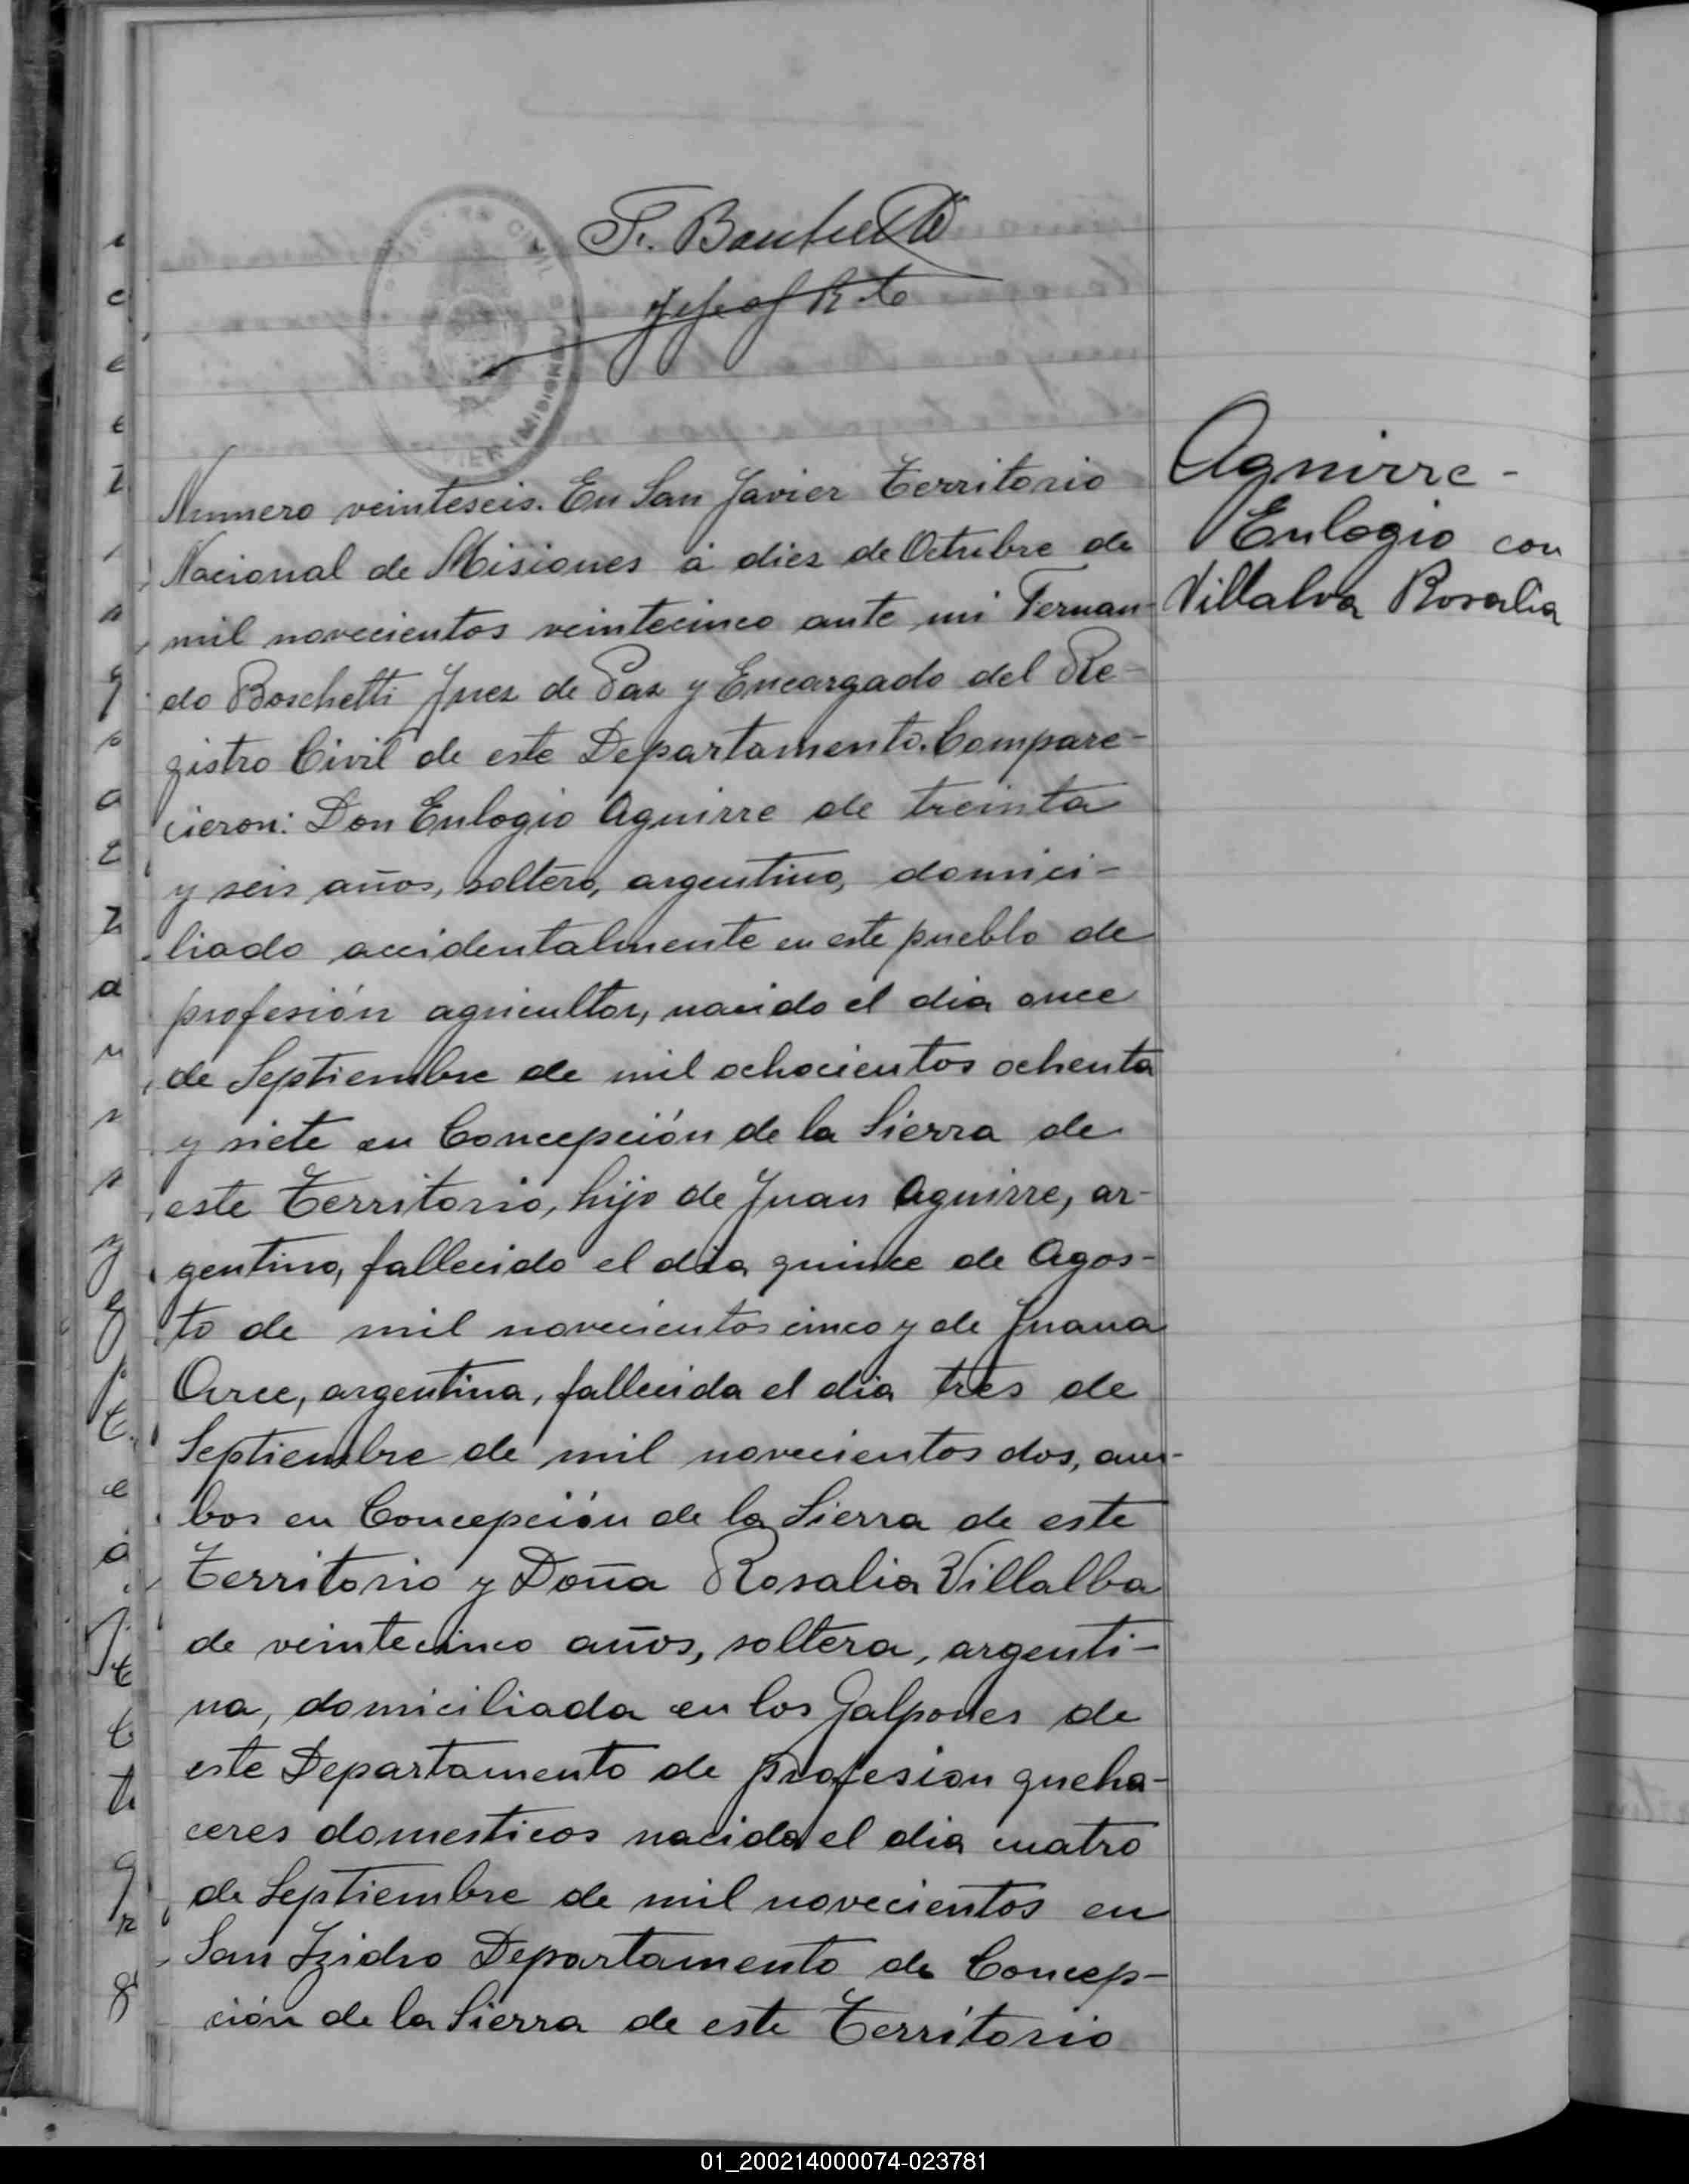 REGISTRO CIVIL
(MISIONES)
F. Boschetti
Numero veinteseis. En San Javier Territorio
Nacional de Misiones á diez de Octubre de
mil novecientos veintecinco ante mi Fernan-
do Boschetti Juez de Paz y Encargado del Re-
gistro Civil de este Departamento. Compare-
cieron: Don Eulogio Aguirre de treinta
y seis años, soltero, argentino, domici-
liado accidentalmente en este pueblo de
profesión agricultor, nacido el dia once
de Septiembre de mil ochocientos ochenta
y siete en Concepción de la Sierra de
este Territorio, hijo de Juan Aguirre, ar-
gentino, fallecido el dia quince de Agos-
to de mil novecientos cinco y de Juana
Arce, argentina, fallecida el dia tres de
Septiembre de mil novecientos dos, am-
bos en Concepción de la Sierra de este
Territorio y Doña Rosalia Villalba
de veintecinco años, soltera, argenti-
na, domiciliada en los Galpones de
este Departamento de profesion queha-
ceres domesticos nacida el dia cuatro
de Septiembre de mil novecientos en
San Izidro Departamento de Concep-
ción de la Sierra de este Territorio
Aguirre -
Eulogio con
Villalva Rosalia
01_200214000074-023781